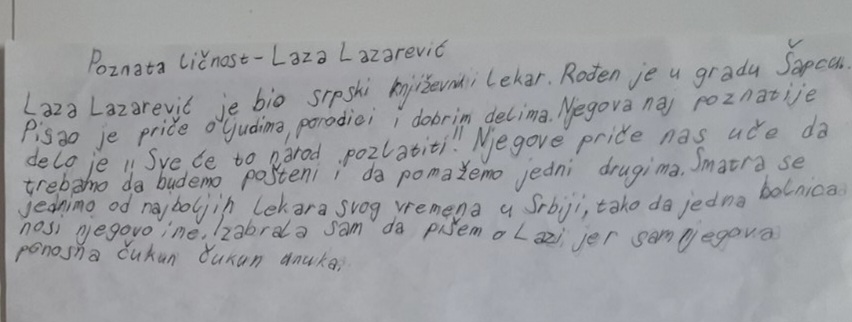 Poznata ličnost - Laza Lazarević
Laza Lazarević je bio srpski književnik i lekar. Rođen je u gradu Šapcu.
Pisao je priče o ljudima, porodici i dobrim delima. Njegova naj poznatije
delo je „Sve će to narod pozlatiti". Njegove priče nas uče da
trebamo da budemo pošteni i da pomažemo jedni drugima. Smatra se
jednimo od najboljih lekara svog vremena u Srbiji, tako da jedna bolnica
nosi njegovo ime. Izabrala sam da pišem o Lazi jer sam njegova
ponosna čukun čukun unuka.